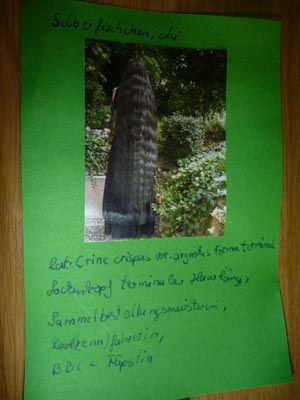 Silberfischchen, die
lat: Crine crispus var. argentus forma terminal
Lockenkopf terminaler Haarlänge,
Sammelbestellungsmeisterin,
führerin,
BBC - Päpstin